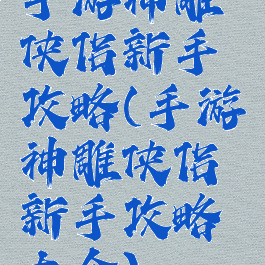 手游神雕
侠侣新手
攻略(手游
神雕侠侣
新手攻略
大全)